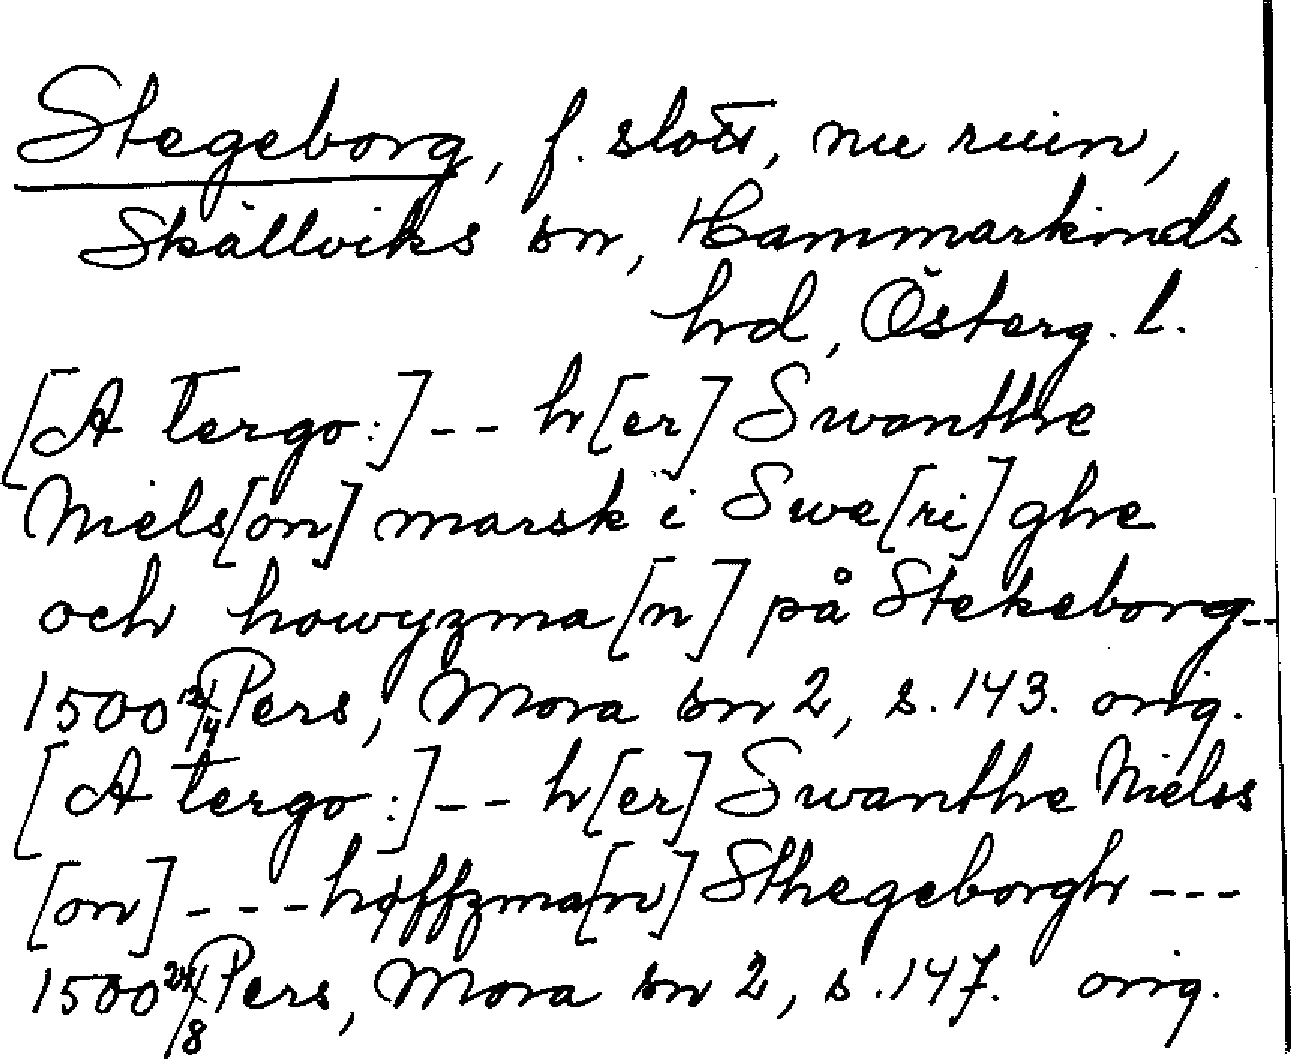 Stegeborg, f. slott, nu ruin,
Skällviks sn, Hammarkinds
hd, Österg. l.
[A tergo:] -- h[er] Swanthe
Niels[on] marsk i Swe[ri]ghe
och howyzma[n] på Stekeborg --
1500 /4 Pers, Mora sn 2, s. 143. orig.
[A tergo:] -- h[er] Swanthe Nielss
[on] --- høffzma[n] Sthegeborgh ---
1500 /8 Pers, Mora sn 2, s. 147. orig.